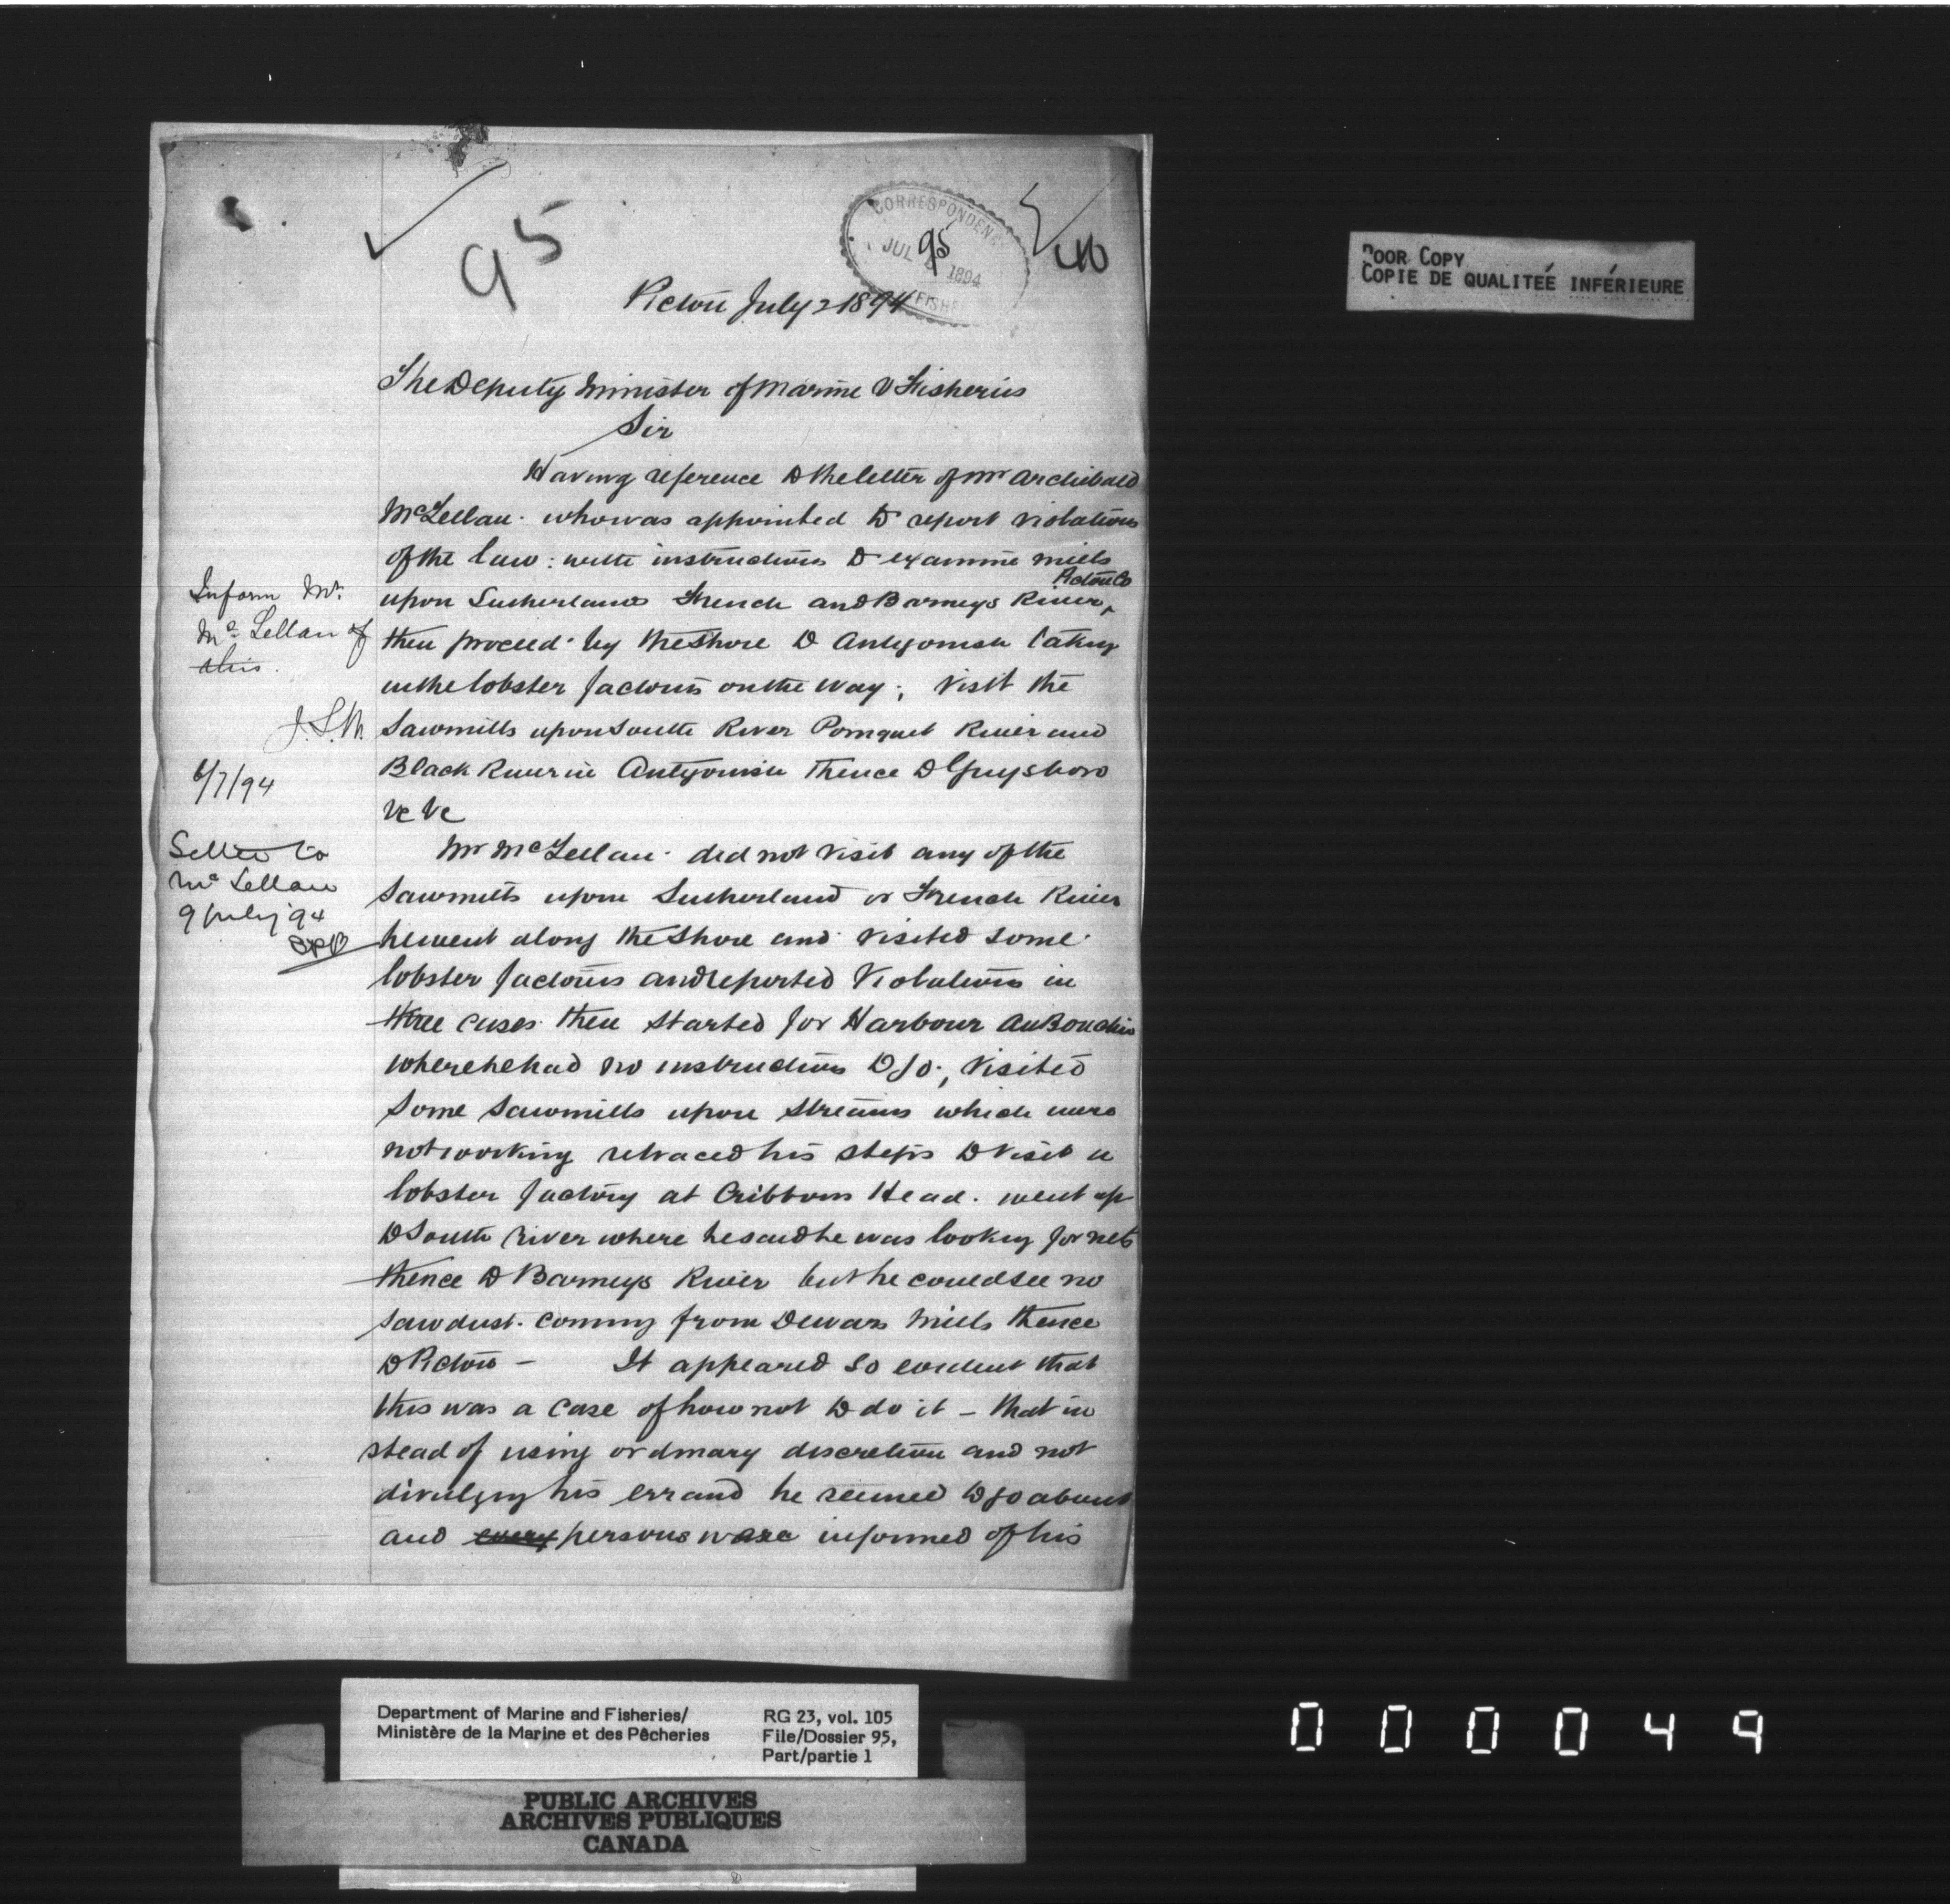 95
CORRESPONDEN
JUL 1894
95
FISHE
40
Pictou July 2 1894
The Deputy Minister of Marine & Fisheries
Sir
Having reference to the letter of Mr Archibald
McLellan. who was appointed to report violations
of the law: with instructions to examine mills
Pictou Co
upon Sutherlands French and Barneys River,
then proceed by the shore to Antigonish taking
in the lobster factories on the way; visit the
Sawmills upon South River Pomquet River and
Black River in Antigonish thence to Guysboro
&c &c
Mr McLellan did not visit any of the
Sawmills upon Sutherland or French River
he went along the shore and visited some
lobster factories and reported Violations in
three cases. then started for Harbour AuBouchie
where he had no instructions to go; visited
some sawmills upon streams which were
not working retraced his steps to visit a
lobster factory at Cribbons Head. went up
to South river where he said he was looking for nets
thence to Barneys River but he could see no
sawdust. coming from Dewars Mills thence
to Pictou — It appeared so evident that
this was a case of how not to do it — that in
stead of using ordinary discretion and not
divulging his errand he seemed to go about
and every persons were informed of his
Inform Mr.
McLellan of
this.
J.S.W.
6/7/94
Letter to
McLellan
9 July 94
POOR COPY
COPIE DE QUALITEÉ INFÉRIEURE
Department of Marine and Fisheries/
Ministère de la Marine et des Pêcheries
RG 23, vol. 105
File/Dossier 95,
Part/partie 1
PUBLIC ARCHIVES
ARCHIVES PUBLIQUES
CANADA
000049